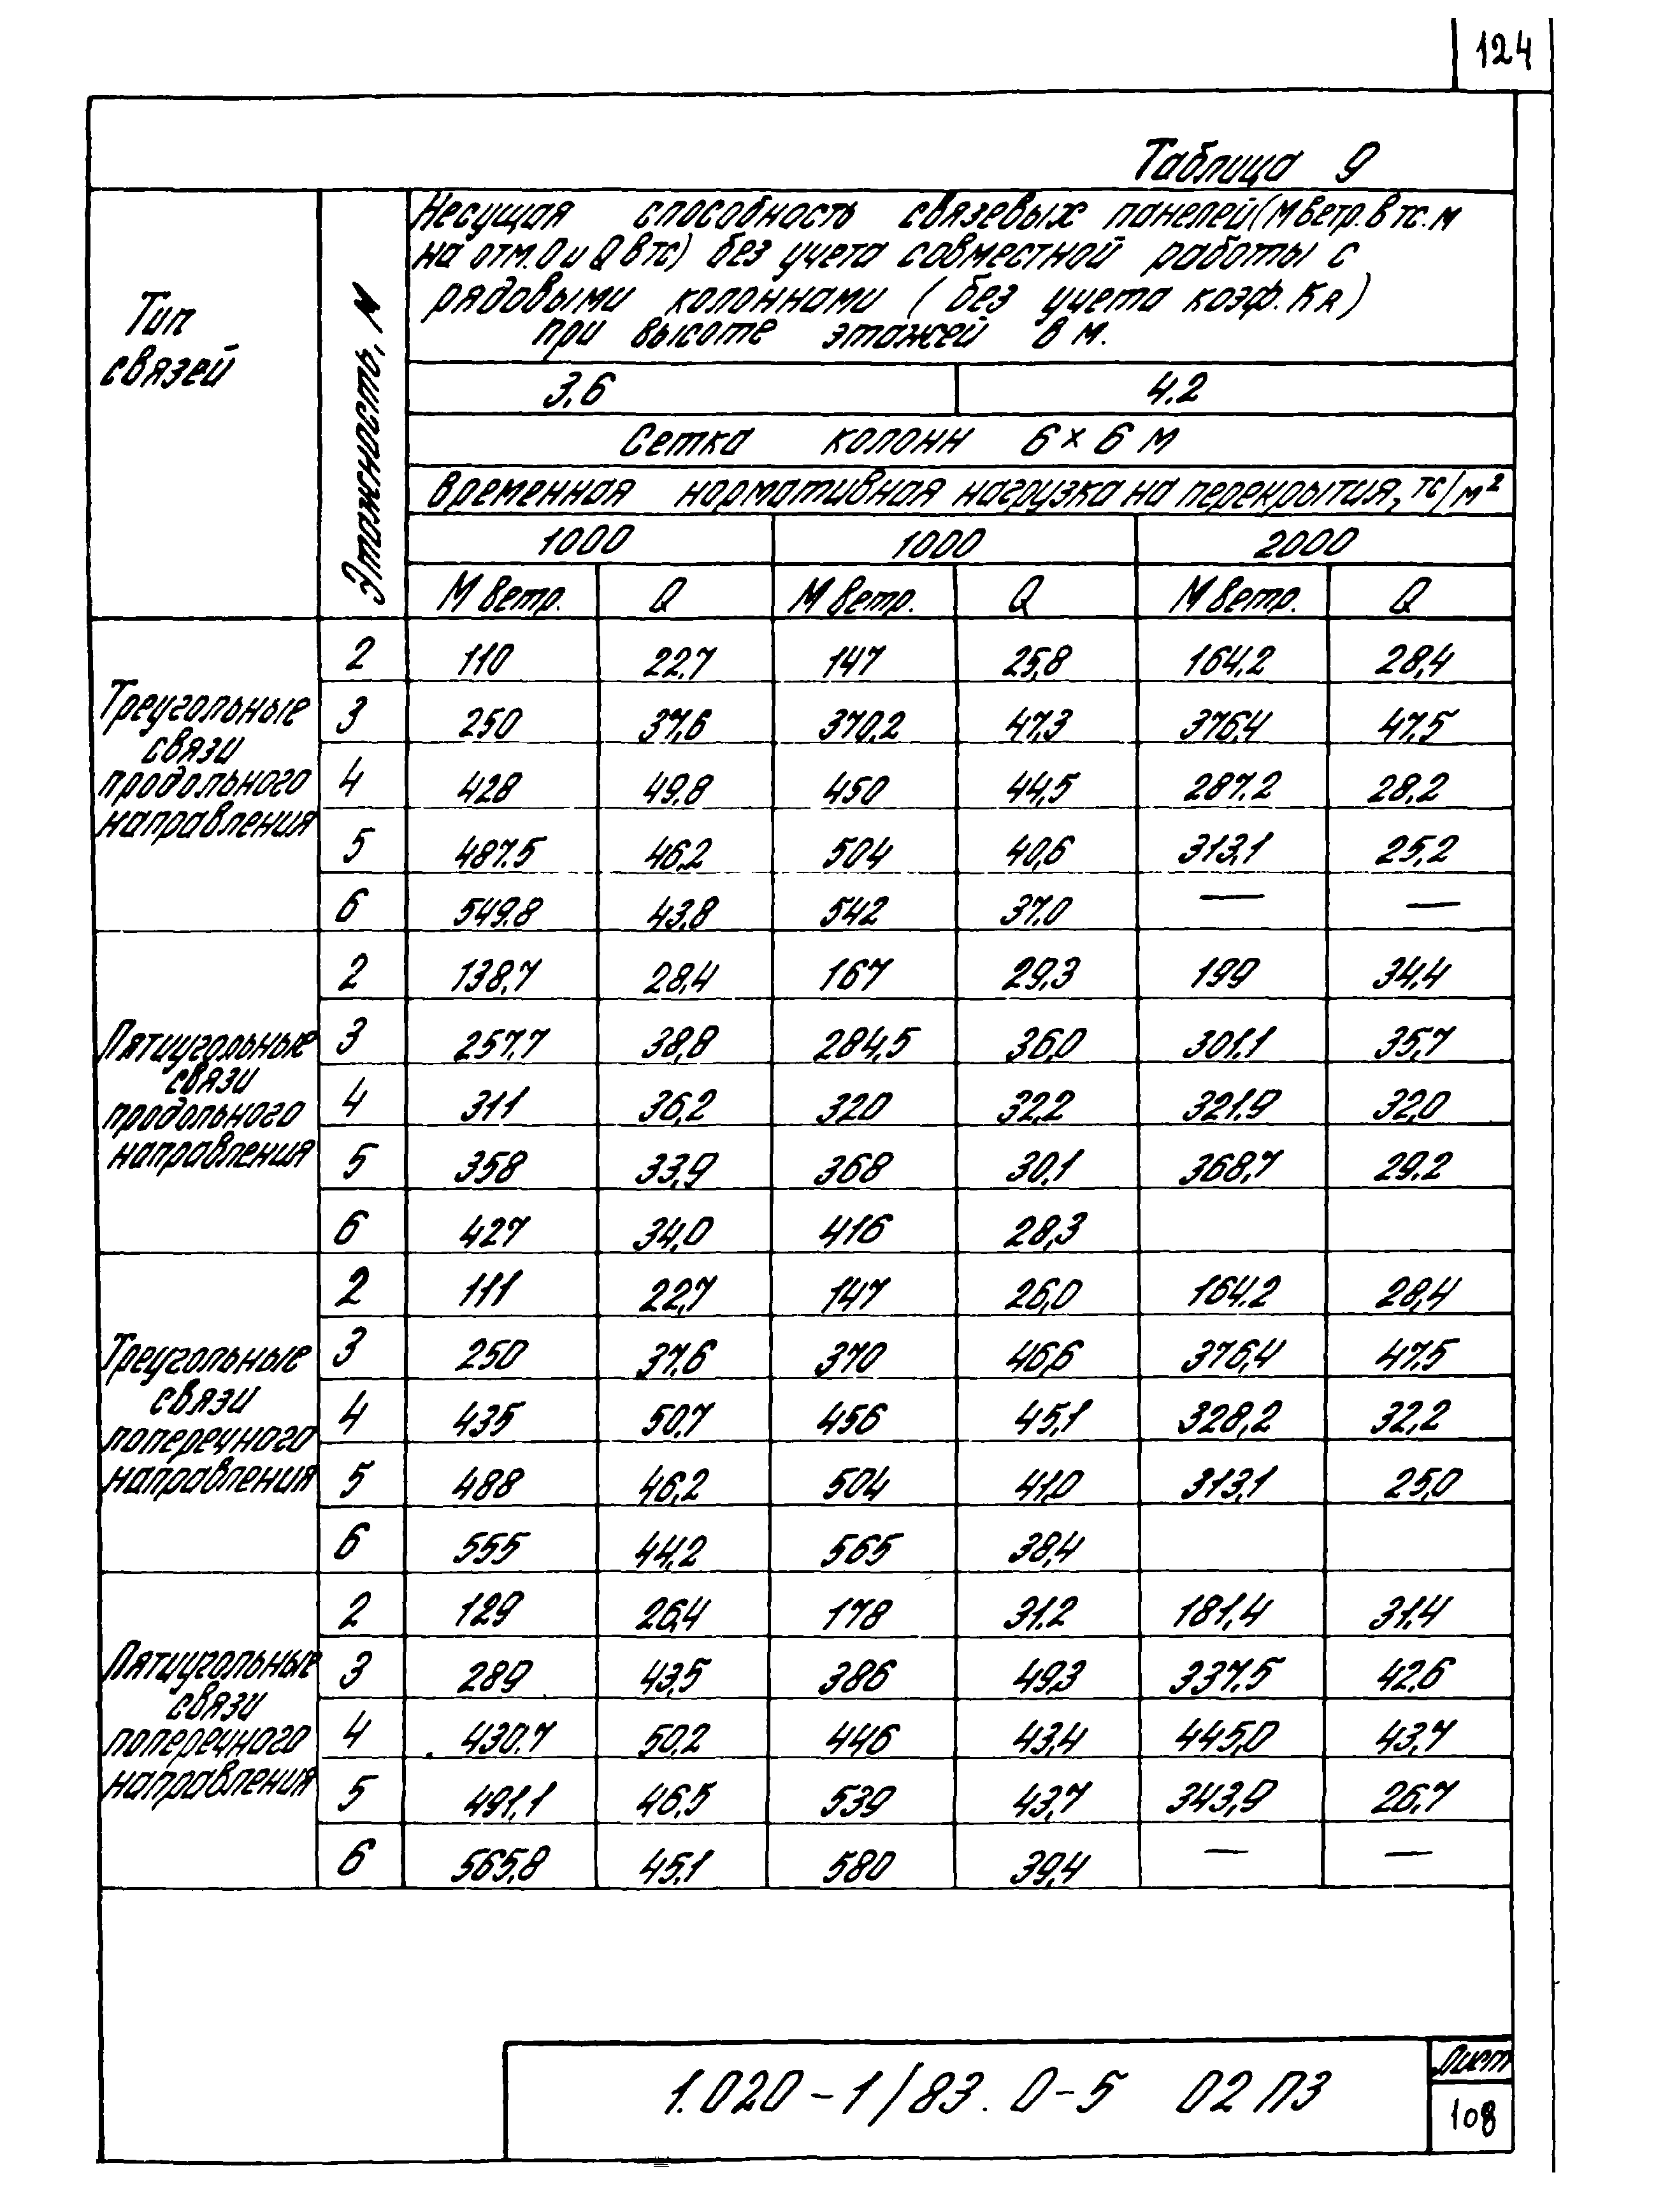 124
Таблица 9
Тип
связей
Этажность, N
Несущая способность связевых панелей (М ветр. в тс.м
на отм. 0 и Q в тс) без учета совместной работы с
рядовыми колоннами (без учета коэф. Кя)
при высоте этажей в м.
3,6 4.2
Сетка колонн 6 × 6 м
временная нормативная нагрузка на перекрытия, тс/м²
1000 1000 2000
М ветр. Q М ветр. Q М ветр. Q
Треугольные
связи
продольного
направления
2 110 22,7 147 25,8 164.2 28,4
3 250 37,6 370,2 47,3 376,4 47,5
4 428 49,8 450 44,5 287.2 28,2
5 487.5 46,2 504 40,6 313,1 25,2
6 549.8 43,8 542 37.0 — —
Пятиугольные
связи
продольного
направления
2 138,7 28,4 167 29,3 199 34,4
3 257,7 38,8 284,5 36,0 301.1 35,7
4 311 36,2 320 32,2 321.9 32,0
5 358 33,9 368 30,1 368,7 29,2
6 427 34,0 416 28,3
Треугольные
связи
поперечного
направления
2 111 22,7 147 26,0 164.2 28,4
3 250 37,6 370 46,6 376,4 47,5
4 435 50,7 456 45,1 328,2 32,2
5 488 46,2 504 41,0 313,1 25,0
6 555 44,2 565 38,4
Пятиугольные
связи
поперечного
направления
2 129 26,4 178 31.2 181,4 31,4
3 289 43,5 386 49,3 337,5 42,6
4 430.7 50,2 446 43,4 445,0 43,7
5 491,1 46,5 539 43,7 343,9 26,7
6 565,8 45,1 580 39,4 — —
1.020-1/83. 0-5 02 ПЗ
Лист
108